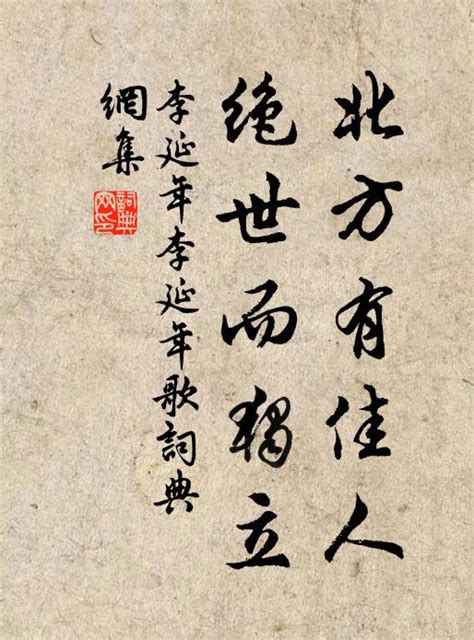 北方有佳人
絶世而獨立
李延年李延年歌詞典
網集
詞典
网印